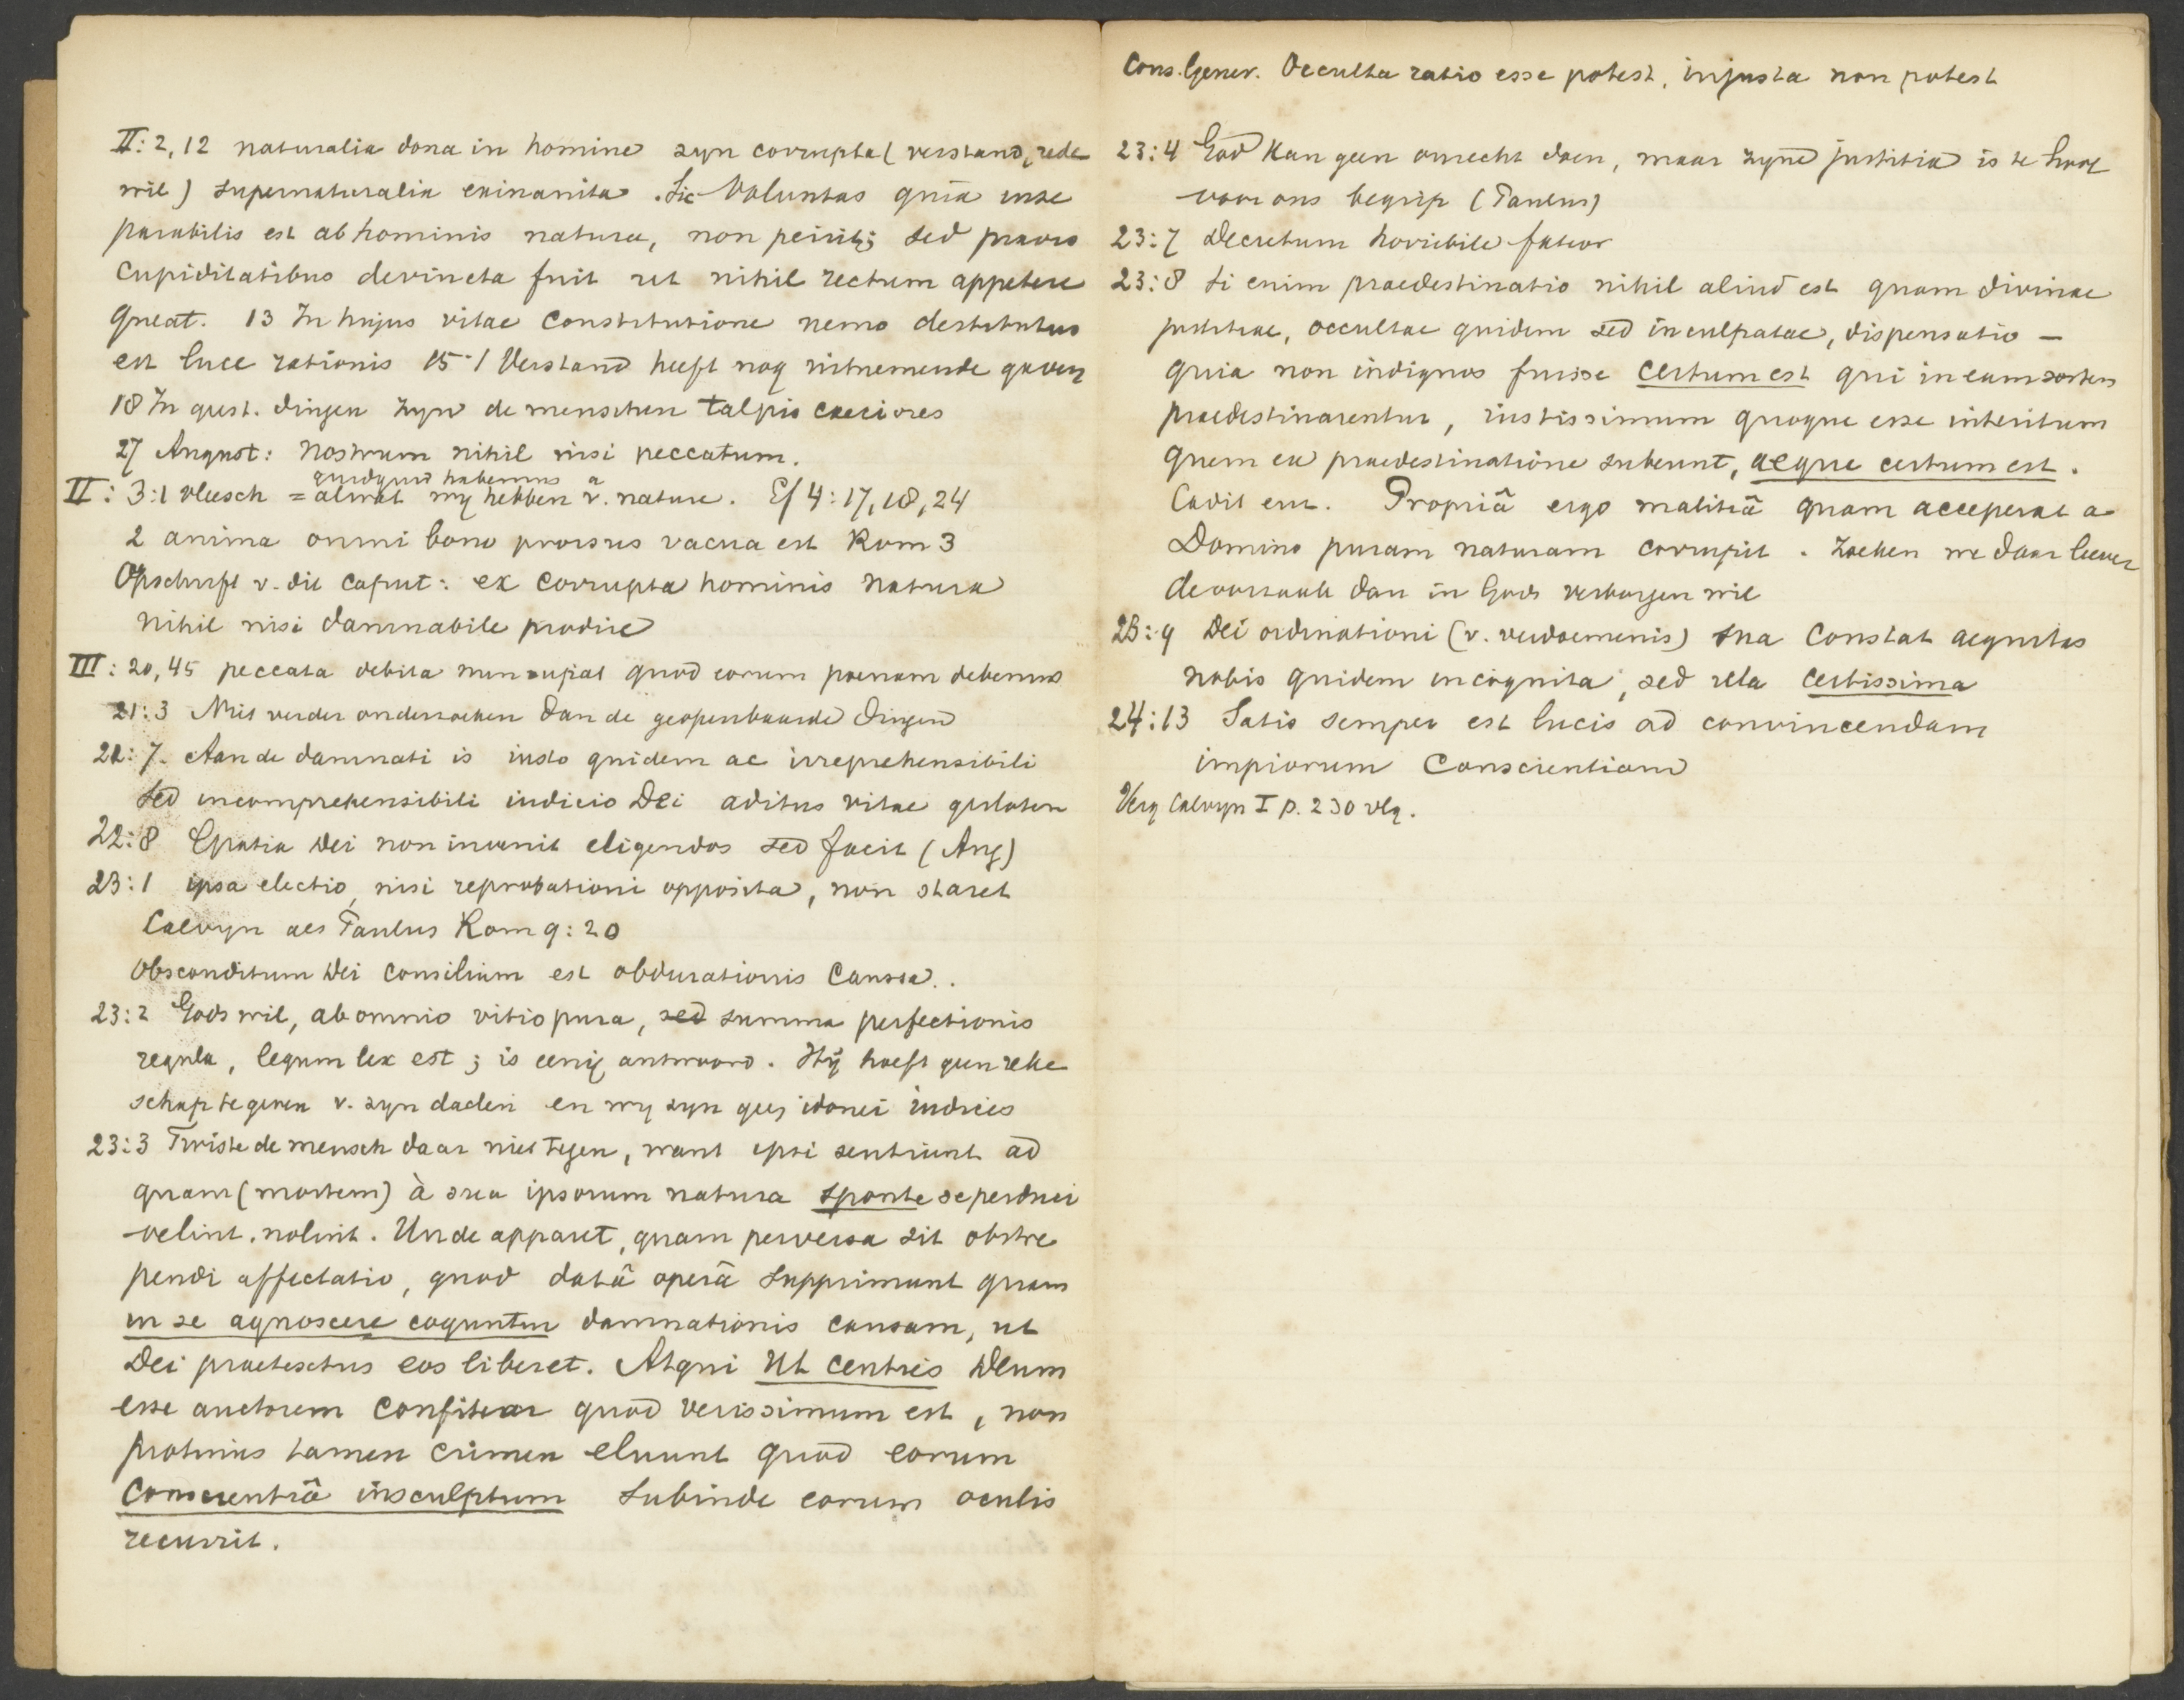 II: 2,12 naturalia dona in homine zyn corrupta (verstand, rede
wil) supernaturalia exinanita. Sic Voluntas quia inse
parabilis est ab hominis natura, non periit; sed pravis
cupiditatibus devincta fuit ut nihil rectum appetere
queat. 13 In hujus vitae constitutione nemo destitutus
est luce rationis 15-1 Verstand heeft nog uitnemende gaven
18 In geest. dingen zyn de menschen talpis caeciores
27 August: nostrum nihil nisi peccatum.
quidquid habemus a
II: 3:1 vleesch = alwat wy hebben v. nature. Ef 4: 17, 18, 24
2 anima omni bono prorsus vacua est Rom 3
Opschrift v. dit Caput: ex corrupta hominis natura
nihil nisi damnabile prodire
III: 20,45 peccata debita nuncupat quod eorum poenam debemus
21:3 Niet verder onderzoeken dan de geopenbaarde dingen
21:7. Aan de damnati is iusto quidem ac irreprehensibili
sed incomprehensibili iudicio Dei aditus vitae gesloten
22:8 Gratia Dei non invenit eligendos sed facit (Aug)
23:1 ipsa electio, nisi reprobationi opposita, non staret
Calvyn als Paulus Rom 9:20
Absconditum Dei consilium est obdurationis caussa.
23:2 Gods wil, ab omnio vitio pura, sed summa perfectionis
regula, legum lex est; is eenig antwoord. Hij hoeft geen reke
schap te geven v. zyn daden en wy zyn geen idonei iudices
23:3 Twiste de mensch daar niet tegen, want ipsi sentiunt ad
quam (mortem) à sua ipsorum natura sponte se perduci
velint, nolint. Unde apparet, quam perversa sit obstre
pendi affectatio, quod datâ operâ supprimunt quam
in se agnoscere coguntur damnationis causam, ut
Dei praetextus eos liberet. Atqui ut centies Deum
esse auctorem confitear quod verissimum est, non
protinus tamen crimen eluunt quod eorum
conscientiâ insculptum subinde eorum oculis
recurrit.
Cons. Genev. Occulta ratio esse potest, injusta non potest
23:4 God kan geen onrecht doen, maar zyne justitia is te hoog
voor ons begrip (Paulus)
23:7 Decretum horribile fateor
23:8 Si enim praedestinatio nihil aliud est quam divinae
justitiae, occultae quidem sed inculpatae, dispensatio —
quia non indignos fuisse certum est qui in eam sortem
praedestinarentur, iustissimum quoque esse interitum
quem ex praedestinatione subeunt, aeque certum est.
Cadit enz. Propriâ ergo malitiâ quam acceperat a
Domino puram naturam corrupit. Zoeken we daar liever
de oorzaak dan in Gods verborgen wil
23:9 Dei ordinationi (v. verdoemenis) sua constat aequitas
nobis quidem incognita, sed illa certissima
24:13 Satis semper est lucis ad convincendam
impiorum conscientiam
Verg Calvyn I p. 230 vlg.